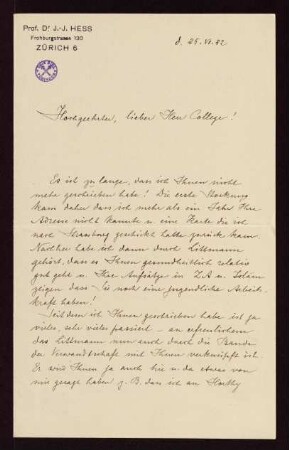 Prof. Dr J.-J. HESS
Frohburgstrasse 130
ZÜRICH 6
d. 25. VI. 32
Hochgeehrter, lieber Herr College!
Es ist zu lange, dass ich Ihnen nicht
mehr geschrieben habe! Die erste Stockung
kam daher dass ich mehr als ein Jahr Ihre
Adresse nicht kannte u eine Karte die ich
nach Strassburg geschickt hatte zurück kam.
Nachher habe ich dann durch Littmann
gehört, dass es Ihnen gesundheitlich relativ
gut geht u Ihre Aufsätze in Z.A u. Islam
zeigen dass Sie noch eine jugendliche Arbeits-
kraft haben!
Seitdem ich Ihnen geschrieben habe ist ja
vieles, sehr vieles passiert — am erfreulichsten
das Littmann nun auch durch die Bande
der Verwandtschaft mit Ihnen verknüpft ist.
Er wird Ihnen ja auch hie u da etwas von
mir gesagt haben z. B. dass ich an